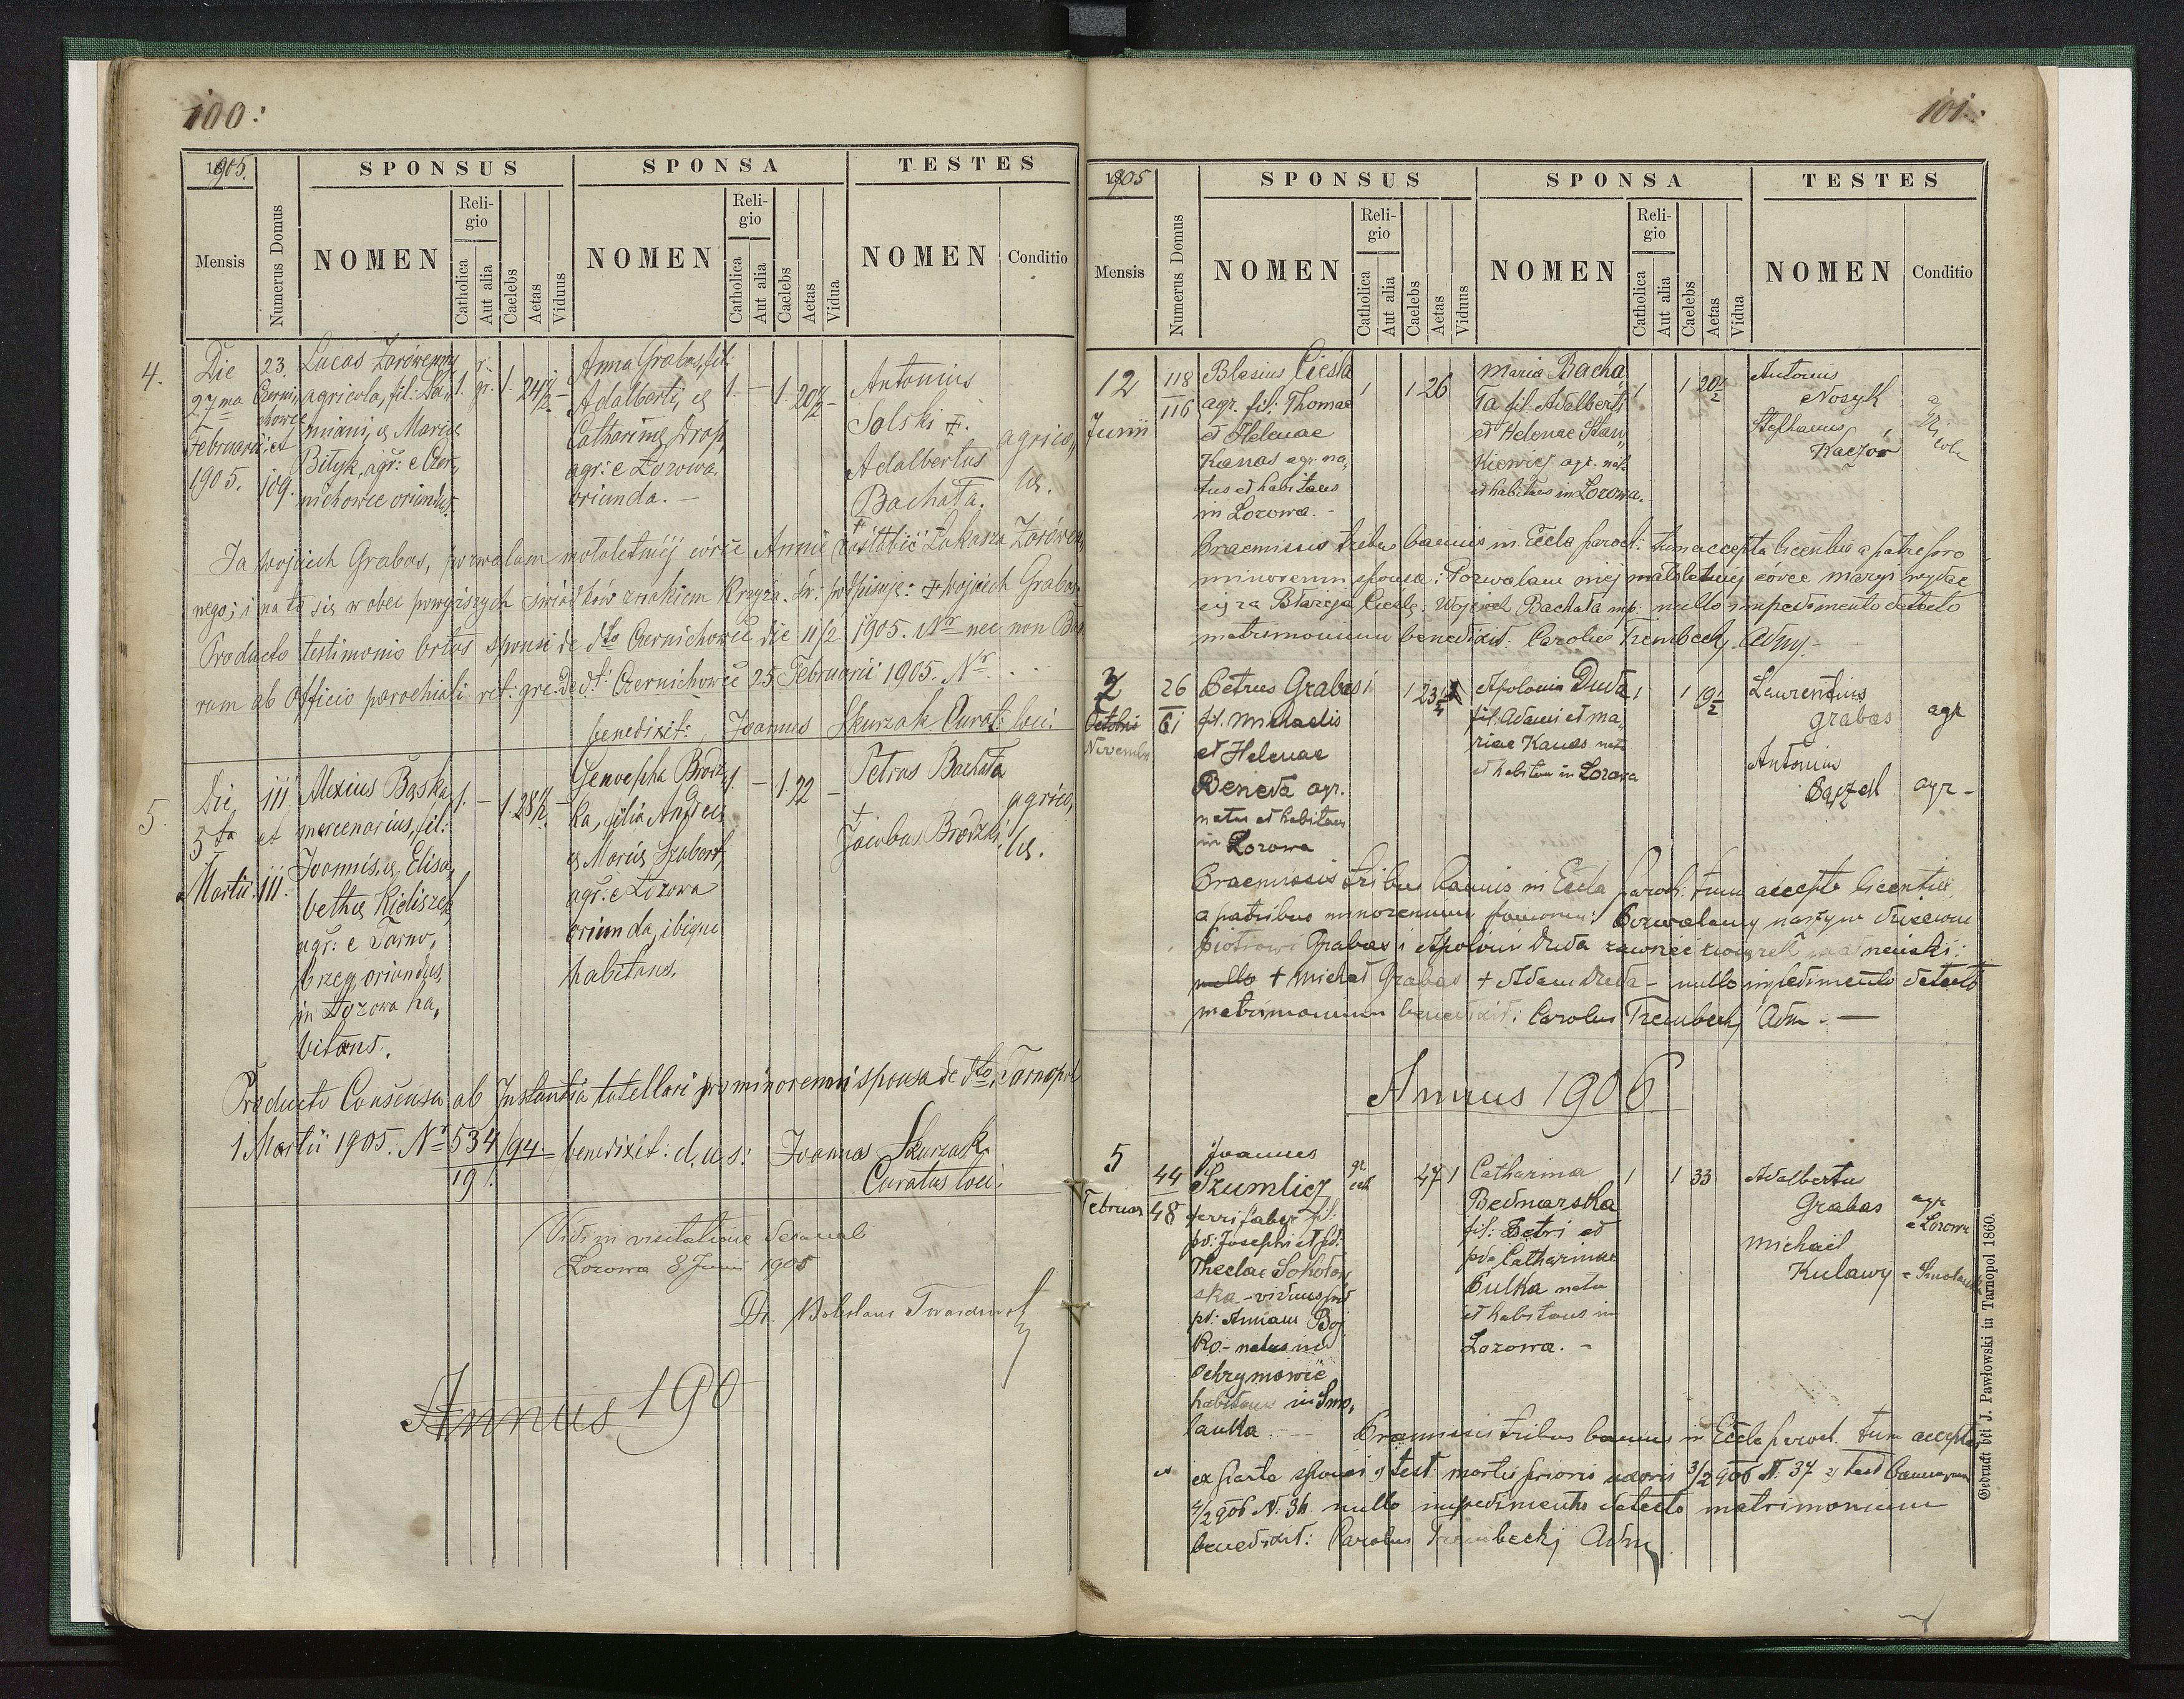 100:
1905.
SPONSUS
SPONSA
TESTES
Mensis
Numerus Domus
NOMEN
Religio
Catholica
Aut alia
Caelebs
Aetas
Viduus
NOMEN
Religio
Catholica
Aut alia
Caelebs
Aetas
Vidua
NOMEN
Conditio
4.
Die
27ma
Februarii
1905.
23.
Czerni„
chowce
et
109.
Lucas Zarówenny
agricola, fil: Da„
miani, et Mariae
Bityk, agr: e Czer„
nichowce oriundus.
1.
r. gr.
1.
24½
-
Anna Grabas, fil:
Adalberti, et
Catharinae Drap,
agr: e Łozowa
oriunda. -
1.
-
1.
20½
-
Antonius
Solski +.
Adalbertus
Bachała.
+
agrico„
lae.
Ja Wojciech Grabas, pozwalam małoletniéj córce Annie zaślubić Łukasza Zarówen„
nego; i na to się wobec powyższych świadków znakiem krzyża św: podpisuje: + Wojciech Grabas
Producto testimonio ortus sponsi de dto Czernichowce die 11/2 1905. Nr nec non Ban„
rum ab Officio parochiali rit: gr: de dt: Czernichowce 25 Februarii 1905. Nr - . -
benedixit: Joannes Skurzak Curat: loci.
5.
Die
5ta
Martii.
111
et
111.
Alexius Baska
mercenarius, fil:
Joannis, et Elisa„
bethae Kieliszek,
agr: e Tarno„
brzeg oriundus,
in Łozowa ha„
bitans.
1.
-
1.
28½.
-
Genovepha Brodz„
ka, filia Andreae
et Mariae Szubert,
agr: e Łozowa
oriunda, ibique
habitans.
1.
-
1.
22
-
Petrus Bachała
+
Jacobus Brodzki
agrico„
lae.
Producto Consensu ab Instantia tutellari pro minorenni sponsa de dto Tarnopol
1 Martii 1905. Nr 534/94
19 1.
benedixit: d. u. s: Joannes Skurzak
Curatus loci.
Vidi in visitatione decanali
Lozowa 8 Junii 1905
Dr. Boleslaus Twardowski
Annus 190
101.:
1905
SPONSUS
SPONSA
TESTES
Mensis
Numerus Domus
NOMEN
Religio
Catholica
Aut alia
Caelebs
Aetas
Viduus
NOMEN
Religio
Catholica
Aut alia
Caelebs
Aetas
Vidua
NOMEN
Conditio
12
Junii
118
116
Blasius Cieśla
agr. fil. Thomae
et Helenae
Kanas agr. na„
tus et habitans
in Lozowa. -
1
1
26
Maria Bacha„
ła fil. Adalberti
et Helenae Stan„
kiewicz agr. nat.
et habitans in Lozowa.
1
1
20½
Antonius
Nosyk
Stephanus
Kaczór
agricolae
Praemissis tribus bannis in Eccla paroch: tum accepta licentia a patre pro
minorenni sponsa: Pozwalam mej małoletniej córce Maryi wydać
się za Błażeja Cieślę: Wojciech Bachała mp. nullo impedimento detecto
matrimonium benedixit: Carolus Trembecki Adm. -
7
Octobri
Novembri
26
61
Petrus Grabas
fil. Michaelis
et Helenae
Beneda agr.
natus et habitans
in Lozowa
1
1
23
Apolonia Duda
fil. Adami et Ma„
riae Kanas nata
et habitans in Lozowa
1
1
19½
Laurentius
Grabas
agr
Antonius
Bączek
agr -
Praemissis tribus bannis in Eccla paroch: tum accepta licentia
a patribus minorennium: Pozwalamy naszym dzieciom
Piotrowi Grabas i Apolonii Duda zawrzeć związek małżeński:
nullo + Michał Grabas + Adam Duda - nullo impedimento detecto
matrimonium benedixit: Carolus Trembecki Adm. -
Annus 1906
5
Februar
44
48
Joannes
Szumlicz
ferri faber fil:
pd: Josephi et pd:
Theclae Sokołow„
ska - viduus post
pd: Annam Boj„
ko - natus in
Ochrymowce
habitans in Smo„
lanka. -
47
1
Catharina
Bednarska
fil: Petri et
pda Catharinae
Pulka nata
et habitans in
Lozowa. -
1
1
33
Adalbertus
Grabas
agr
e Lozowa
Michaël
Kulawy
e Smolanka
Praemissis tribus bannis in Eccla paroch. tum acceptis
ex parte sponsi 1) test. mortis prioris uxoris 3/2 906 N. 37 2) test bannorum
4/2 906 N. 36 nullo impedimento detecto matrimonium
benedixit: Carolus Trembecki Adm
Gedruckt bei J. Pawłowski in Tarnopol 1860.